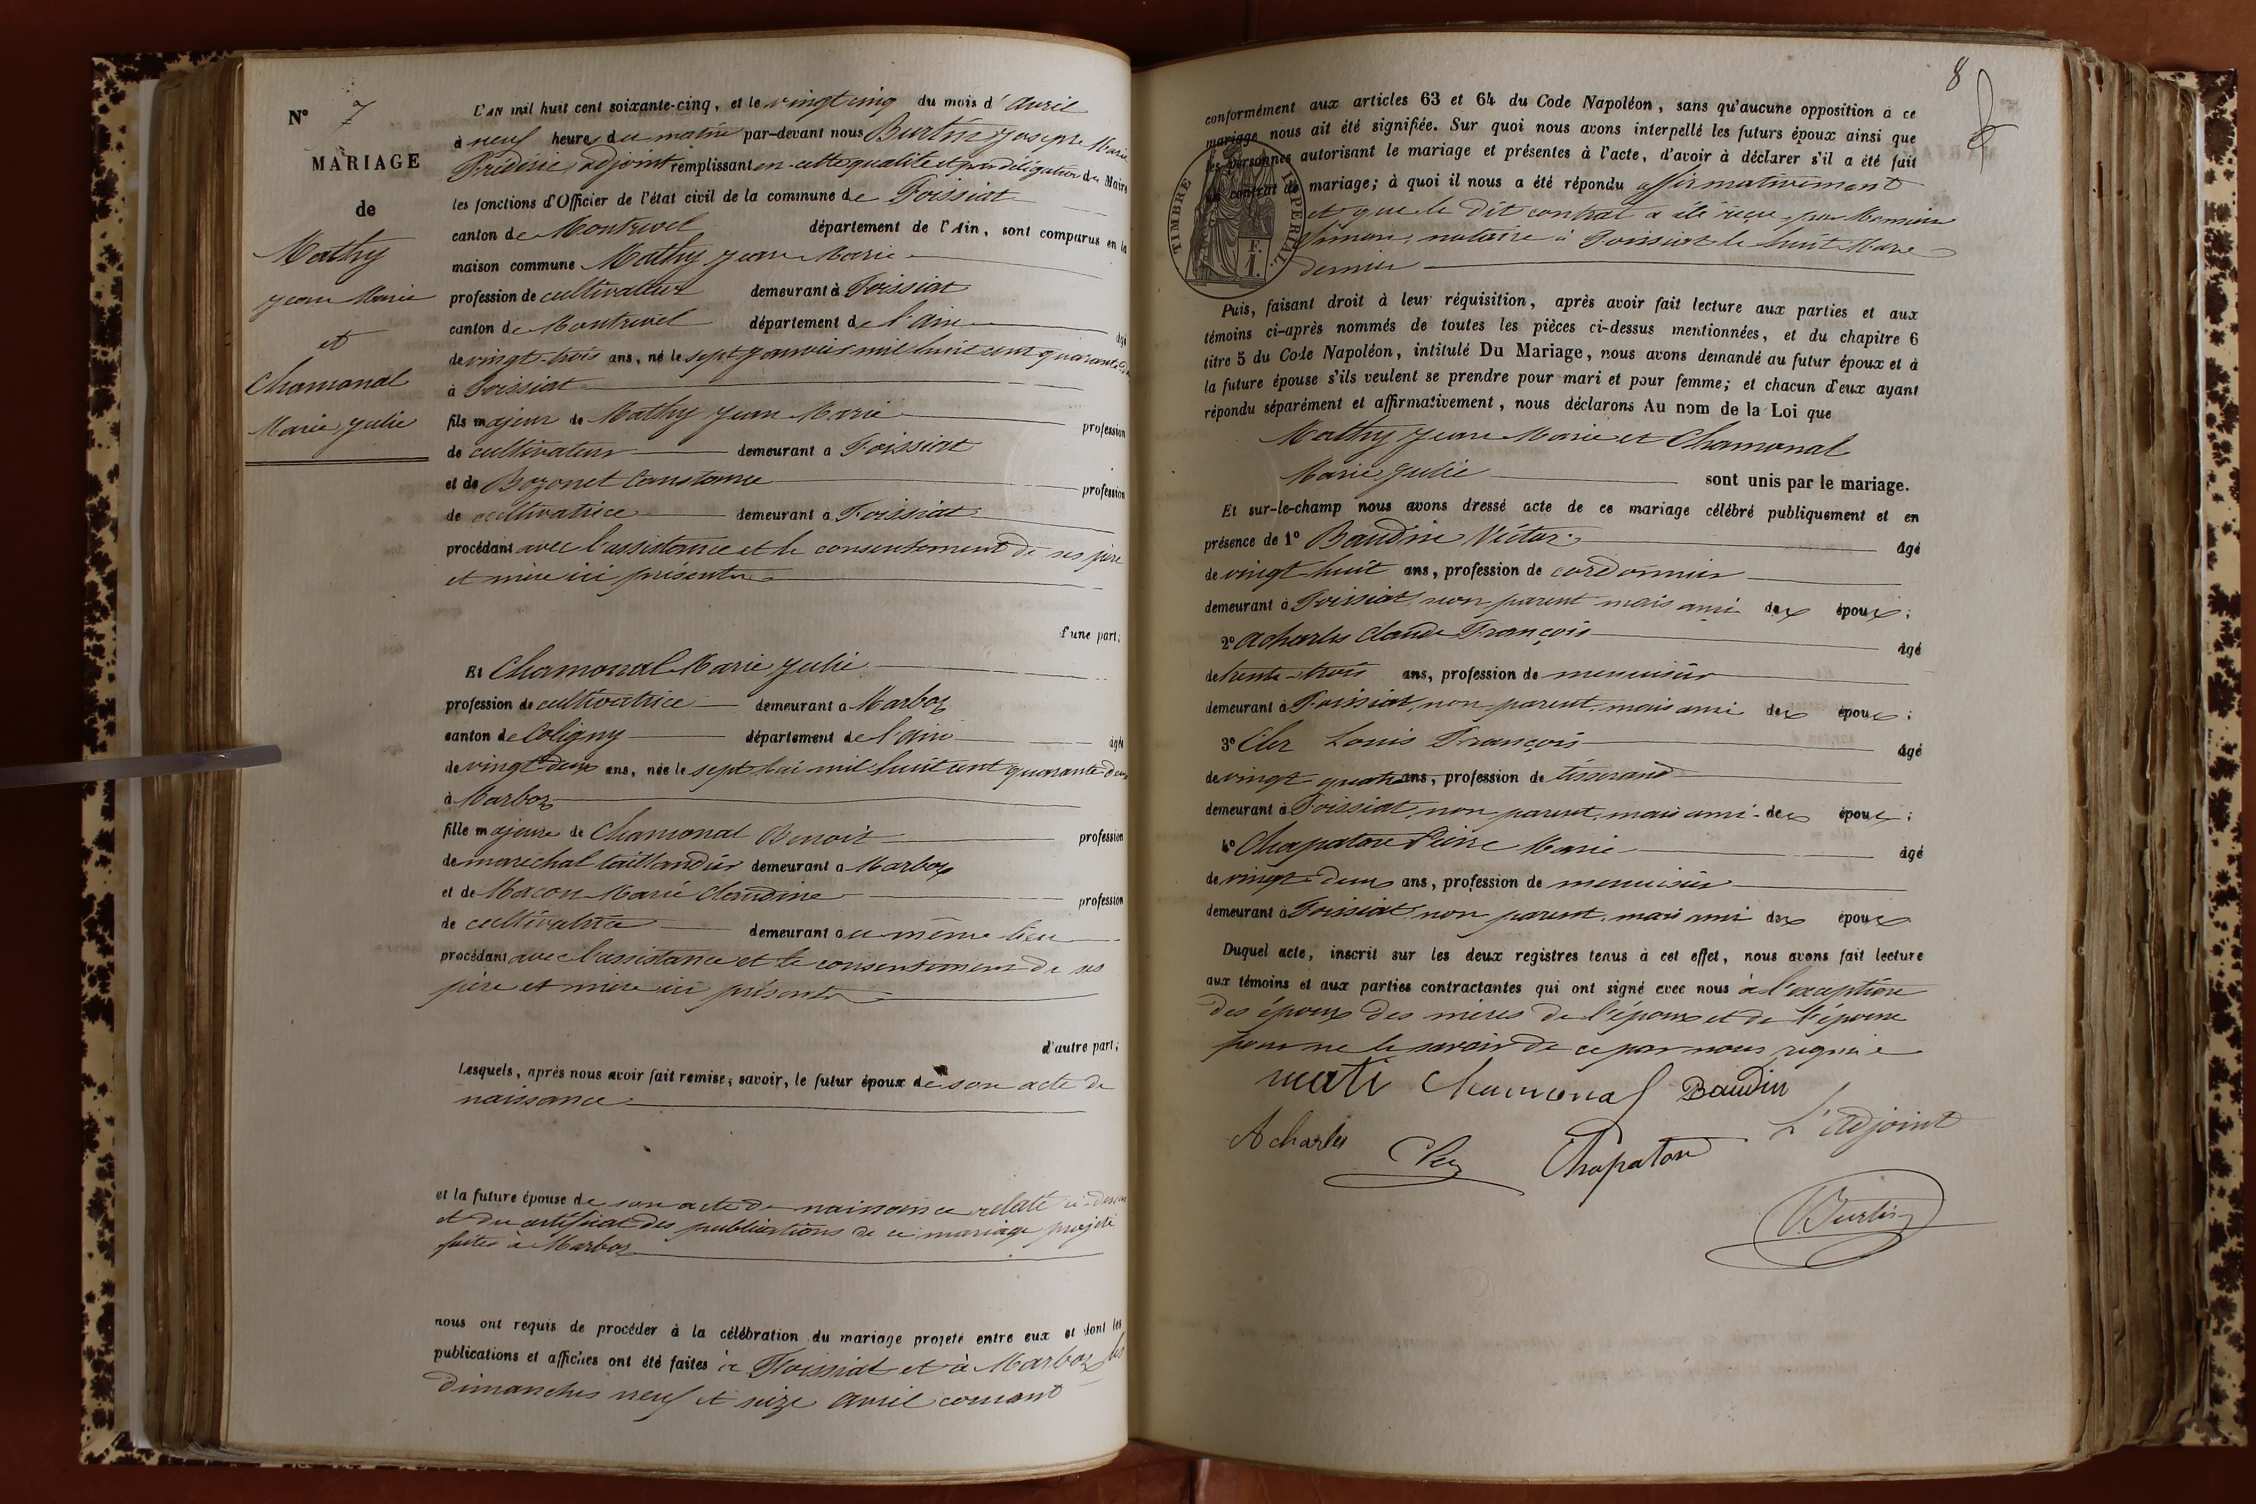 N° 7
MARIAGE
de
Mathy
Jean Marie
et
Chamonal
Marie Julie
L'AN mil huit cent soixante-cinq, et le vingt cinq du mois d'avril
à neuf heures du matin par-devant nous Burtin Joseph Marie
Frédéric adjoint remplissant en cette qualité et par délégation du Maire
les fonctions d'Officier de l'état civil de la commune de Foissiat
canton de Montrevel département de l'Ain, sont comparus en la
maison commune Mathy Jean Marie
profession de cultivateur demeurant à Foissiat
canton de Montrevel département de l'ain âgé
de vingt-trois ans, né le sept janvier mil huit cent quarante deux
à Foissiat
fils majeur de Mathy Jean Marie profession
de cultivateur demeurant à Foissiat
et de Bozonet Constance profession
de cultivatrice demeurant à Foissiat
procédant avec l'assistance et le consentement de ses père
et mère ici présents
d'une part;
Et Chamonal Marie Julie
profession de cultivatrice demeurant à Marboz
canton de Coligny département de l'ain âgée
de vingt-deux ans, née le sept mai mil huit cent quarante-deux
à Marboz
fille majeure de Chamonal Benoit profession
de maréchal taillandier demeurant à Marboz
et de Macon Marie Claudine profession
de cultivatrice demeurant au même lieu
procédant avec l'assistance et le consentement de ses
père et mère ici présents
d'autre part;
Lesquels, après nous avoir fait remise, savoir, le futur époux de son acte de
naissance
et la future épouse de son acte de naissance relaté ci-dessus
et du certificat des publications de ce mariage projeté
faites à Marboz
nous ont requis de procéder à la célébration du mariage projeté entre eux et dont les
publications et affiches ont été faites à Foissiat et à Marboz les
dimanches neuf et seize avril courant
8
conformément aux articles 63 et 64 du Code Napoléon, sans qu'aucune opposition à ce
mariage nous ait été signifiée. Sur quoi nous avons interpellé les futurs époux ainsi que
les personnes autorisant le mariage et présentes à l'acte, d'avoir à déclarer s'il a été fait
un contrat de mariage; à quoi il nous a été répondu affirmativement
et que le dit contrat a été reçu par
notaire à Foissiat le huit Mars
dernier
TIMBRE IMPERIAL
Puis, faisant droit à leur réquisition, après avoir fait lecture aux parties et aux
témoins ci-après nommés de toutes les pièces ci-dessus mentionnées, et du chapitre 6
titre 5 du Code Napoléon, intitulé Du Mariage, nous avons demandé au futur époux et à
la future épouse s'ils veulent se prendre pour mari et pour femme; et chacun d'eux ayant
répondu séparément et affirmativement, nous déclarons Au nom de la Loi que
Mathy Jean Marie et Chamonal
Marie Julie sont unis par le mariage.
Et sur-le-champ nous avons dressé acte de ce mariage célébré publiquement et en
présence de 1° Baudin Victor âgé
de vingt-huit ans, profession de cordonnier
demeurant à Foissiat, non parent mais ami des époux;
2° Acharles Claude François âgé
de trente-trois ans, profession de menuisier
demeurant à Foissiat, non parent, mais ami des époux;
3° Cler Louis François âgé
de vingt-quatre ans, profession de tisserand
demeurant à Foissiat, non parent, mais ami des époux;
4° Chapaton Pierre Marie âgé
de vingt-deux ans, profession de menuisier
demeurant à Foissiat, non parent, mais ami des époux
Duquel acte, inscrit sur les deux registres tenus à cet effet, nous avons fait lecture
aux témoins et aux parties contractantes qui ont signé avec nous à l'exception
des époux des mères de l'époux et de l'épouse
pour ne le savoir de ce par nous requis
mati Chamonal Baudin
Acharles Cler Chapaton L'adjoint
Burtin